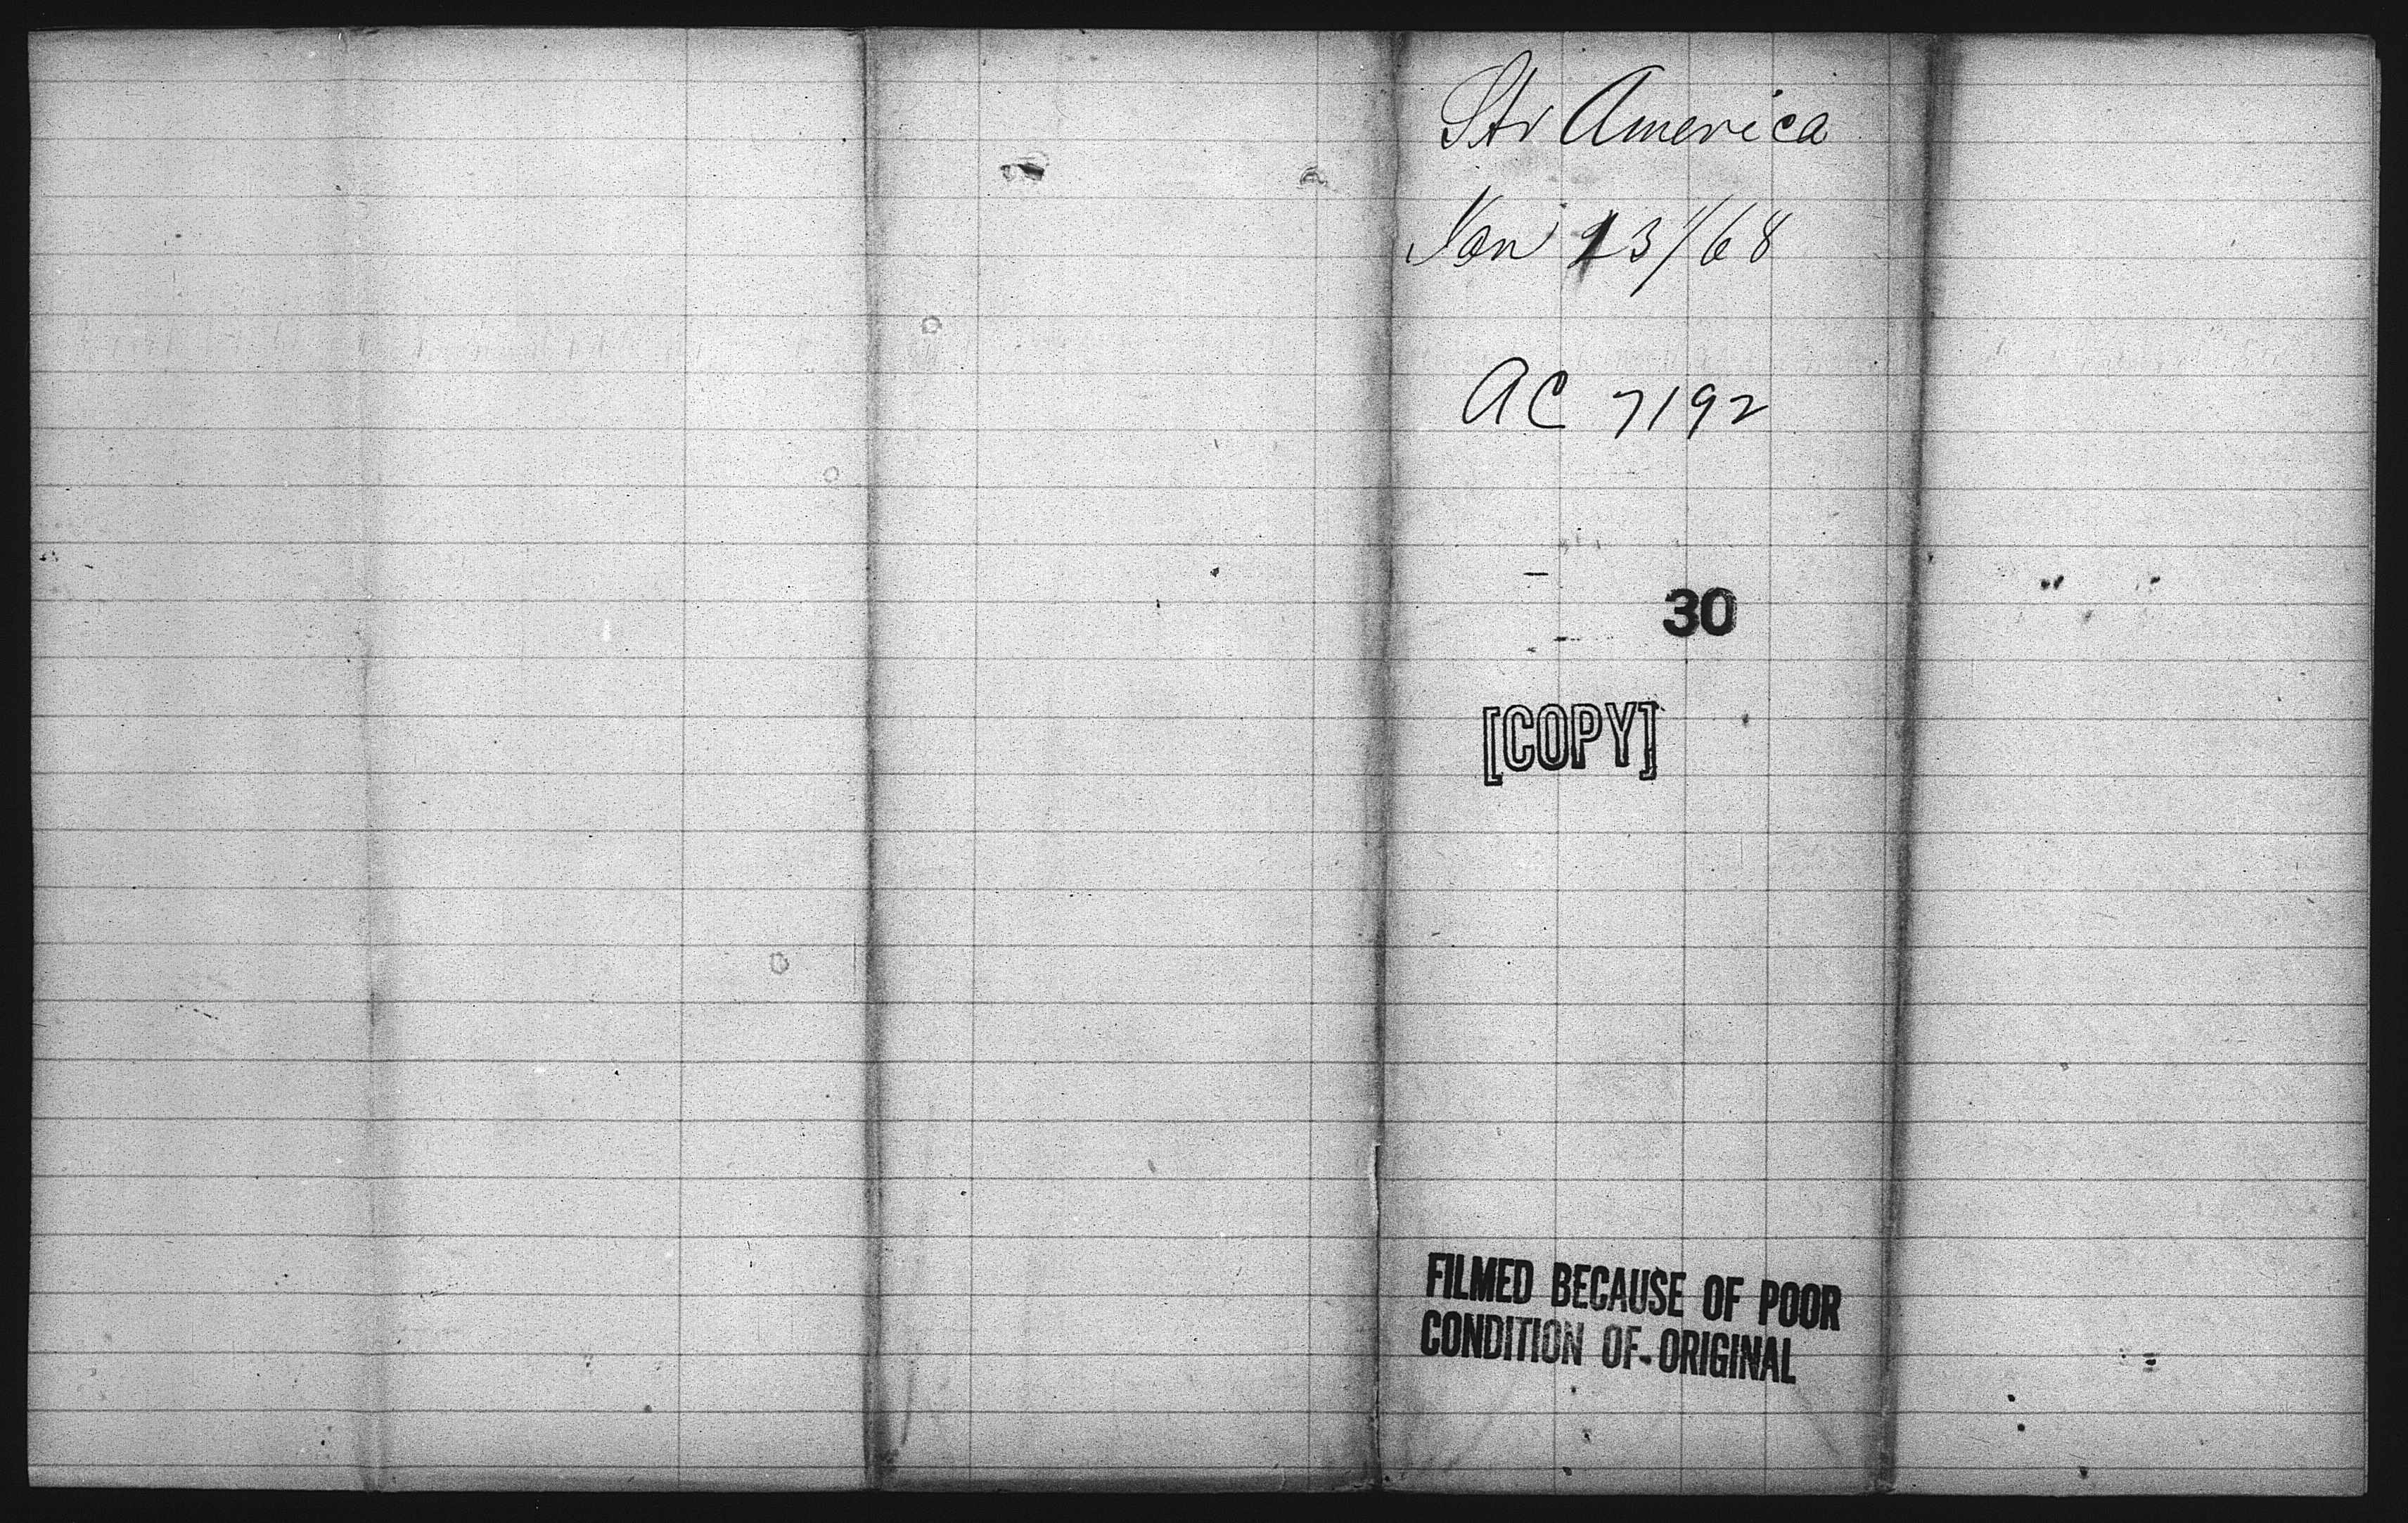 Str America
Jan 13/68
AC 7192
30
[COPY]
FILMED BECAUSE OF POOR
CONDITION OF ORIGINAL